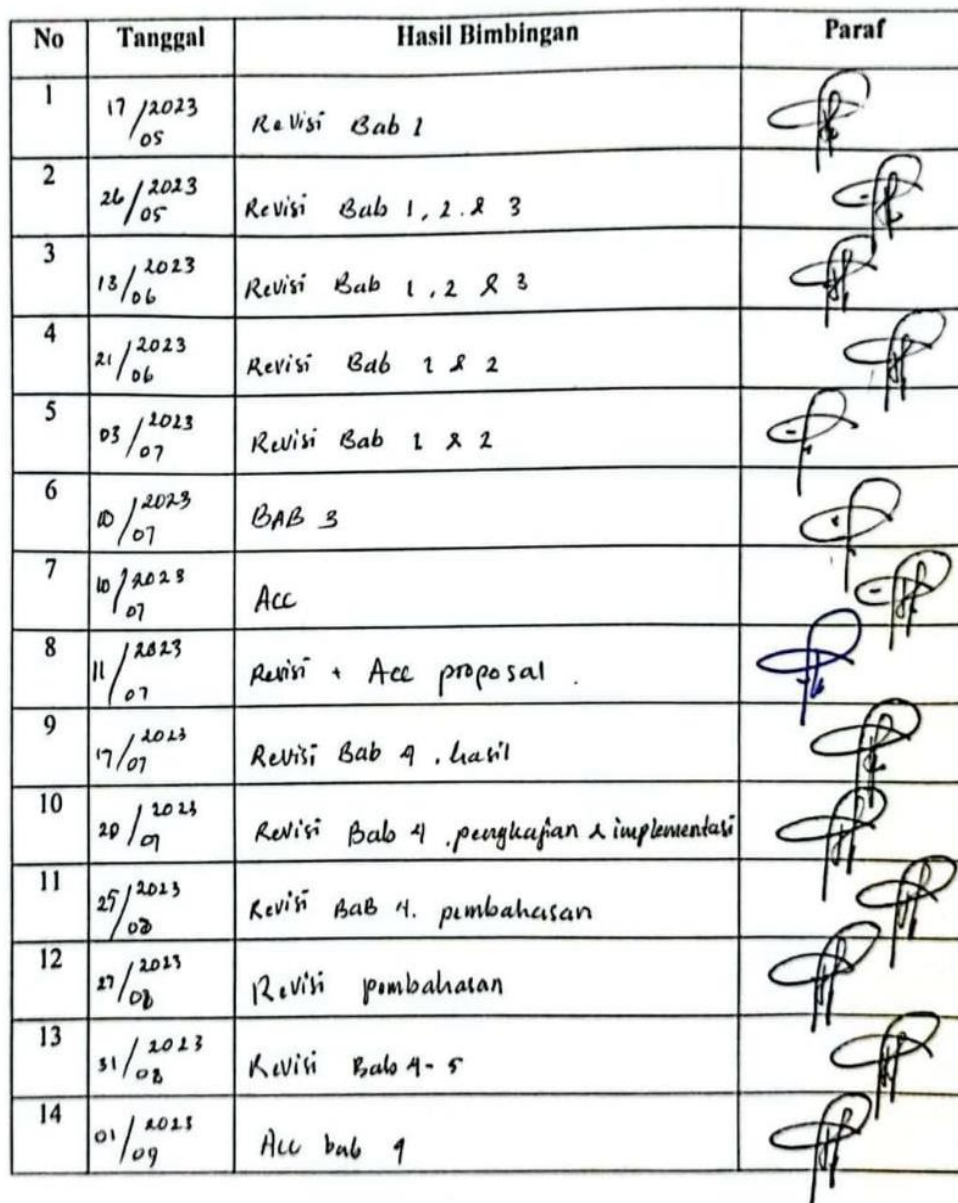 No Tanggal Hasil Bimbingan Paraf
1 17/2023 05 Revisi Bab 1
2 26/2023 05 Revisi Bab 1, 2. & 3
3 13/2023 06 Revisi Bab 1, 2 & 3
4 21/2023 06 Revisi Bab 1 & 2
5 03/2023 07 Revisi Bab 1 & 2
6 10/2023 07 BAB 3
7 10/2023 07 Acc
8 11/2023 07 Revisi + Acc proposal.
9 17/2023 07 Revisi Bab 4. hasil
10 20/2023 Revisi Bab 4. pengkajian & implementasi
11 25/2023 08 Revisi BAB 4. pembahasan
12 27/2023 08 Revisi pembahasan
13 31/2023 08 Revisi Bab 4-5
14 01/2023 09 Acc bab 4